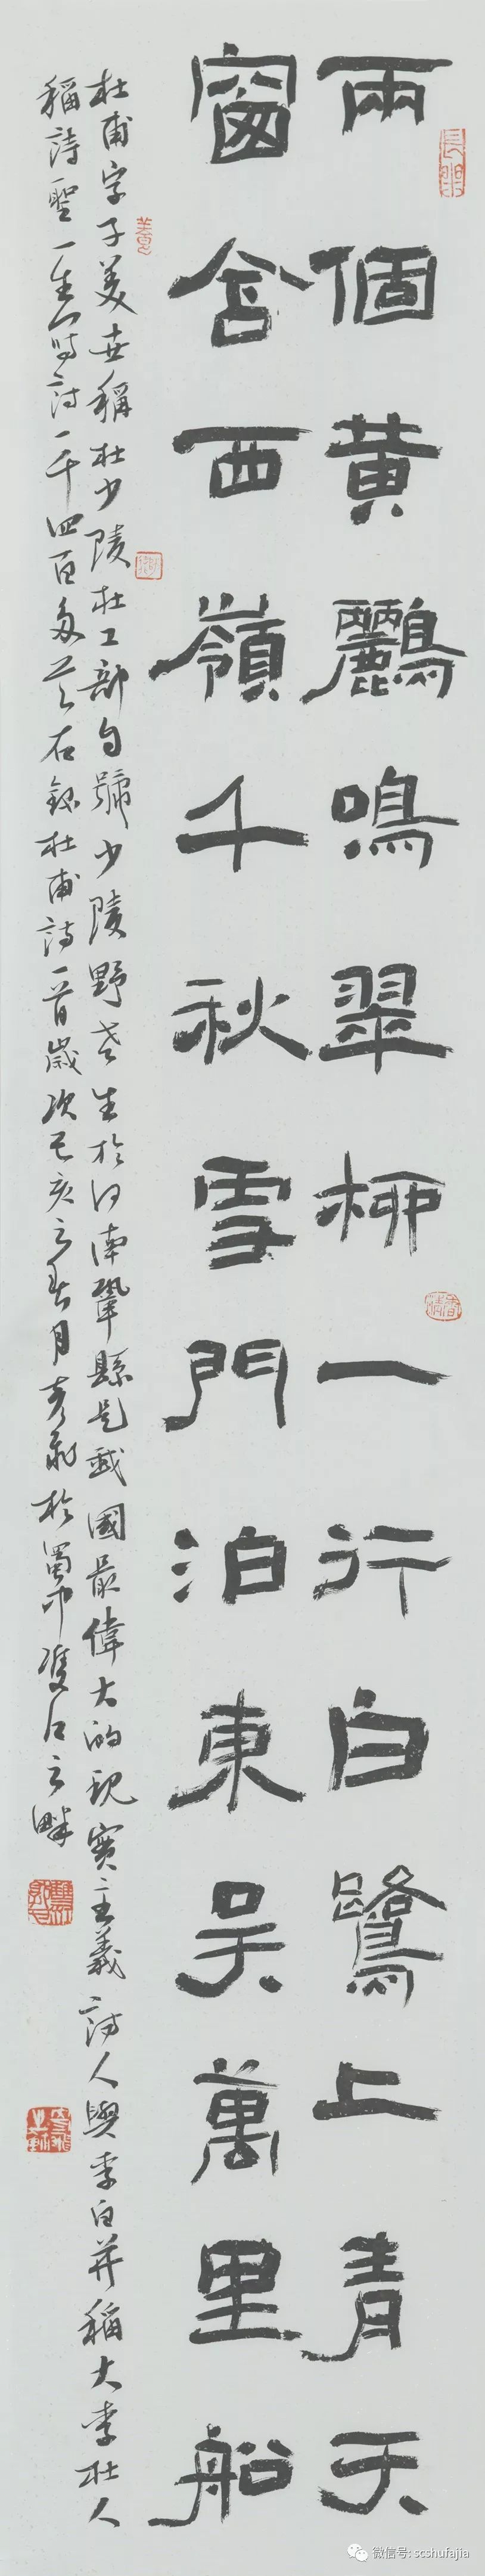 兩個黃鸝鳴翠柳一行白鷺上青天
窗含西嶺千秋雪門泊東吳萬里船
杜甫字子美世稱杜少陵杜工部自號少陵野老生於河南鞏縣是我國最偉大的現實主義詩人與李白并稱大李杜人
稱詩聖一生寫詩一千四百多首右錄杜甫詩一首歲次己亥之春月 於蜀中雙江之畔
微信号: scshufajia